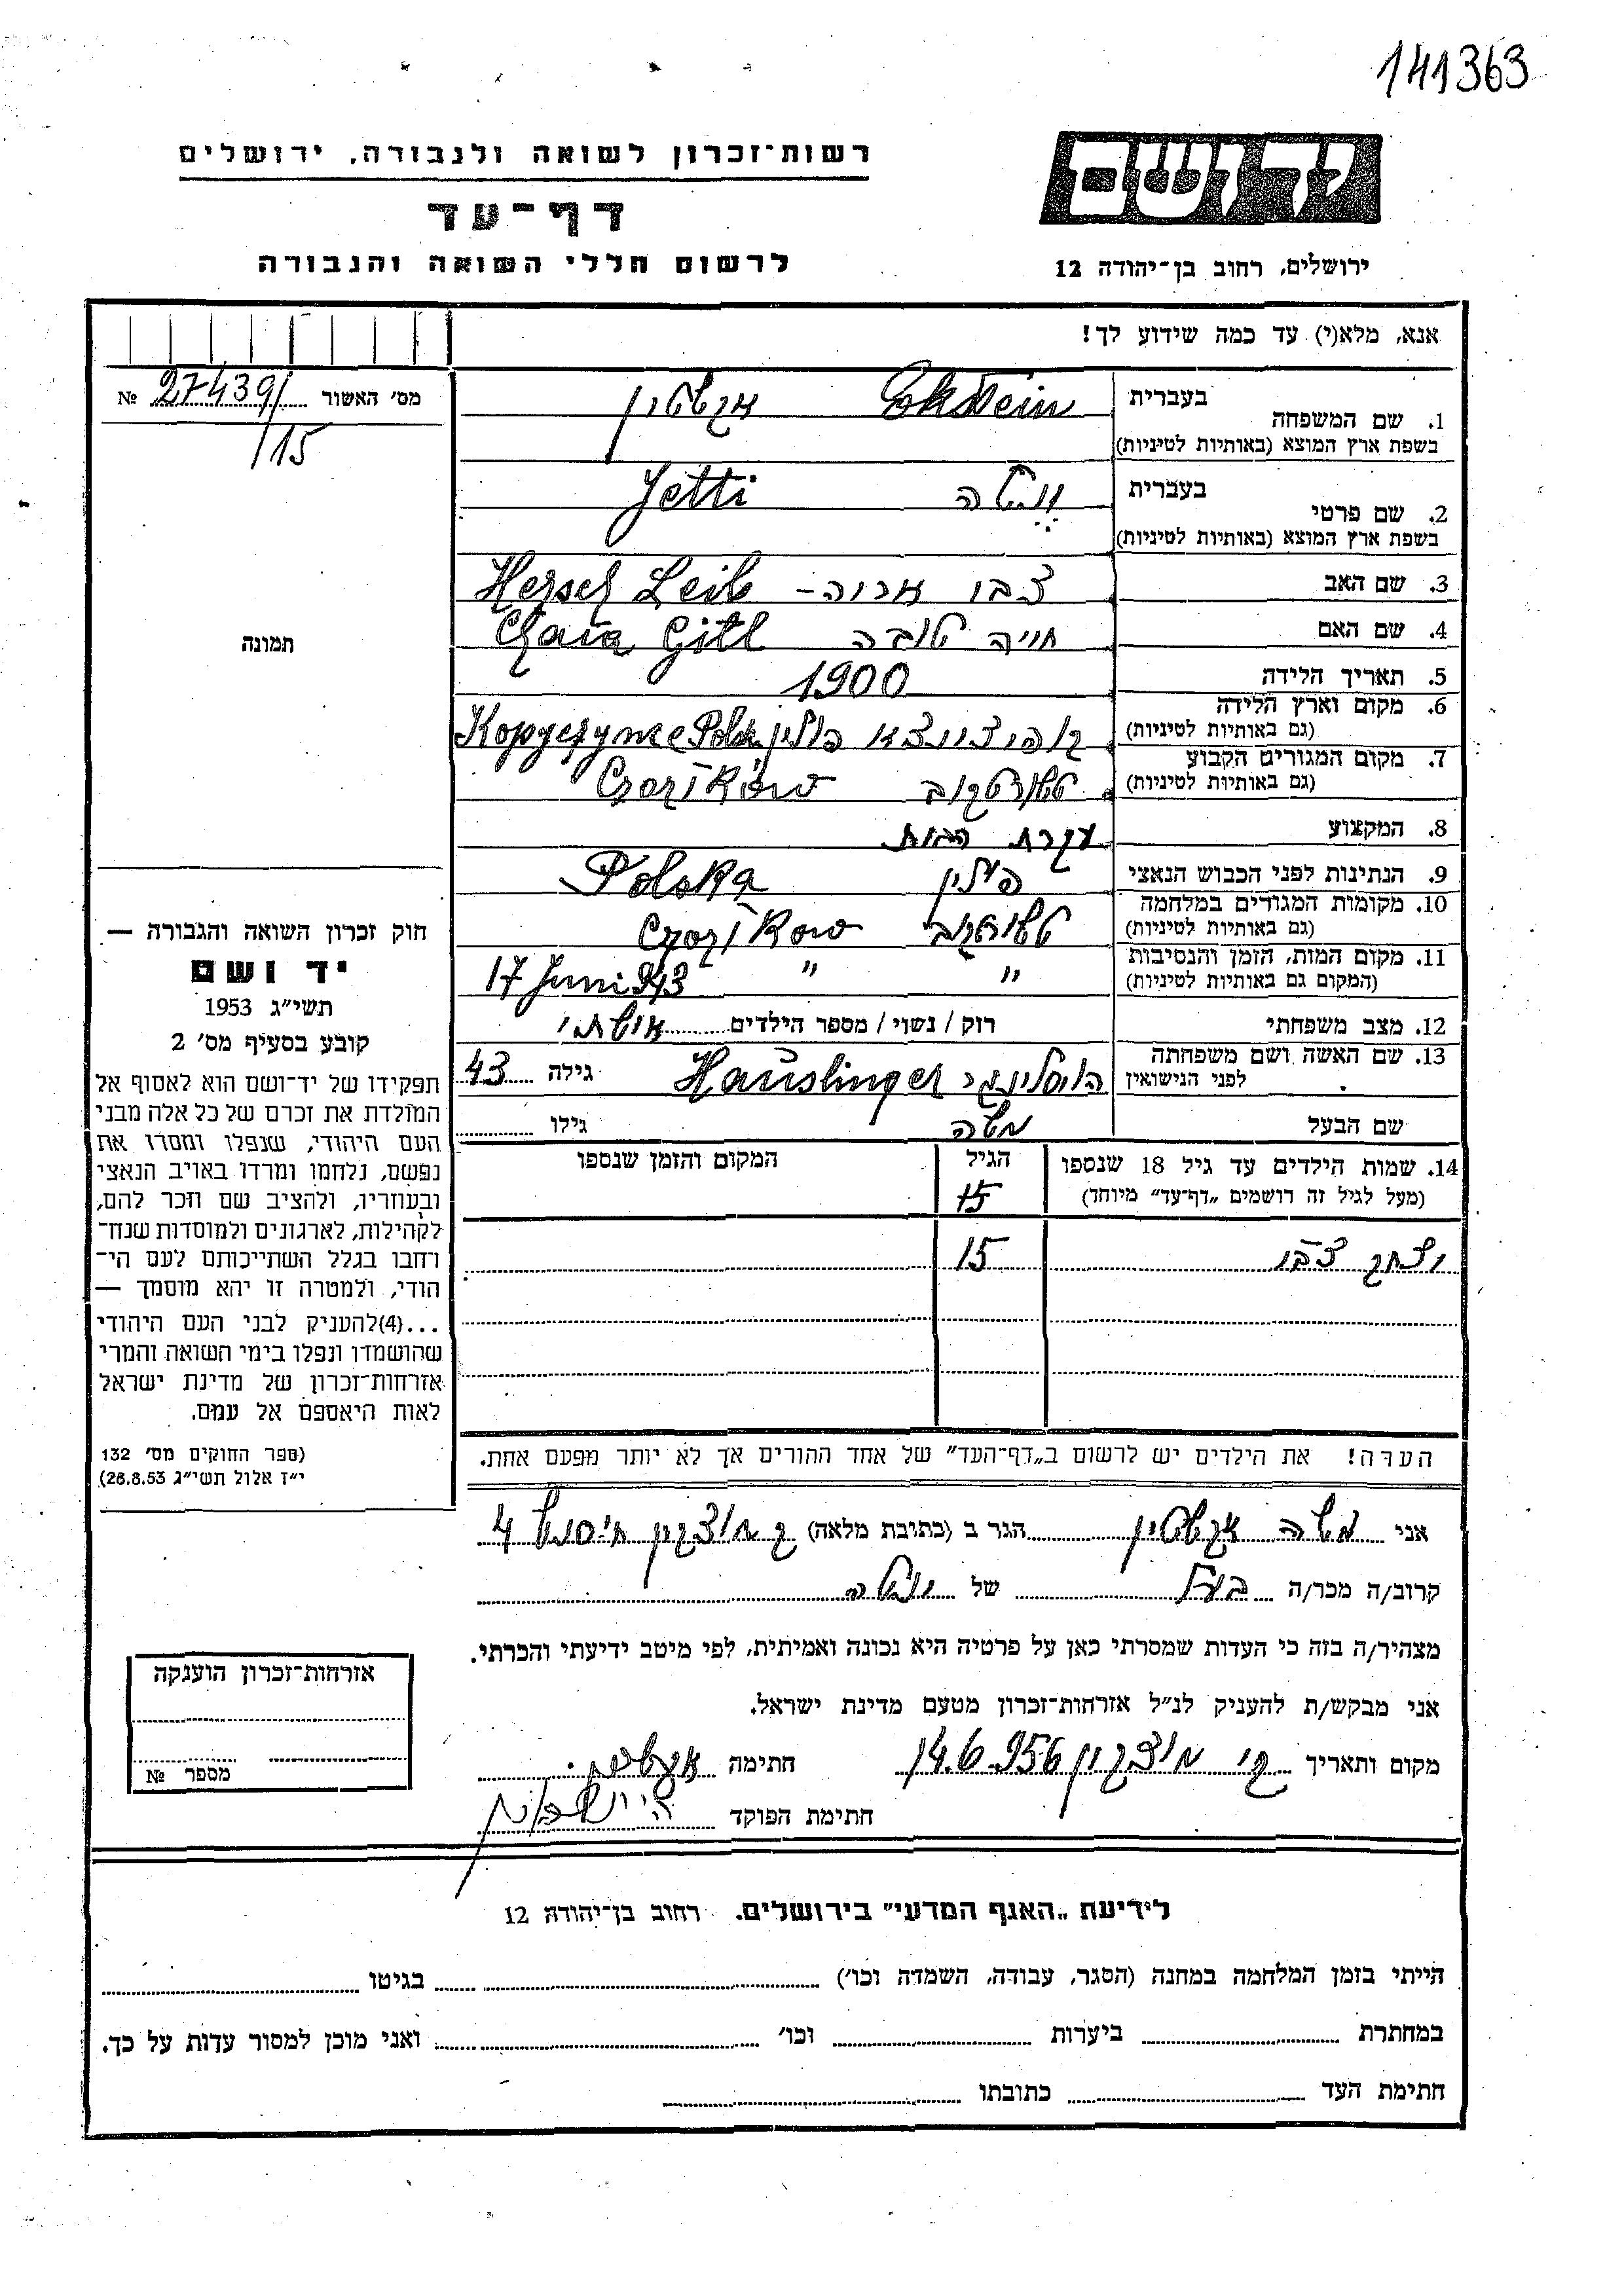 141363
יד ושם
ירושלים, רחוב בן־יהודה 12
רשות־זכרון לשואה ולגבורה, ירושלים
דף־עד
לרשום חללי השואה והגבורה
אנא, מלא(י) עד כמה שידוע לך!
מס׳ האשור № 27439/
/15
תמונה
בעברית
1. שם המשפחה Ekstein אקשטיין
בשפת ארץ המוצא (באותיות לטיניות)
בעברית
2. שם פרטי Jetti
בשפת ארץ המוצא (באותיות לטיניות)
3. שם האב צבי אריה – Hersch Leib
4. שם האם חייה טובה Chaia Gitl
5. תאריך הלידה 1900
6. מקום וארץ הלידה פולין
(גם באותיות לטיניות)
7. מקום המגורים הקבוע טשורטקוב Czortków
(גם באותיות לטיניות)
8. המקצוע עקרת הבית
9. הנתינות לפני הכבוש הנאצי פולין Polska
10. מקומות המגורים במלחמה טשורטקוב Czortkow
(גם באותיות לטיניות)
11. מקום המות, הזמן והנסיבות " " 17 Juni 943
(המקום גם באותיות לטיניות)
12. מצב משפחתי רוק / נשוי / מספר הילדים
13. שם האשה ושם משפחתה Hauslinger גילה 43
לפני הנישואין
שם הבעל משה גילו
14. שמות הילדים עד גיל 18 שנספו הגיל המקום והזמן שנספו
(מעל לגיל זה רושמים „דף־עד״ מיוחד) 15
יצחק צבי 15
הערה! את הילדים יש לרשום ב„דף־העד״ של אחד ההורים אך לא יותר מפעם אחת.
חוק זכרון השואה והגבורה —
יד ושם
תשי״ג 1953
קובע בסעיף מס׳ 2
תפקידו של יד־ושם הוא לאסוף אל
המולדת את זכרם של כל אלה מבני
העם היהודי, שנפלו ומסרו את
נפשם, נלחמו ומרדו באויב הנאצי
ובעוזריו, ולהציב שם וזכר להם,
לקהילות, לארגונים ולמוסדות שנח־
רחבו בגלל השתייכותם לעם הי־
הודי, ולמטרה זו יהא מוסמך —
...(4)להעניק לבני העם היהודי
שהושמדו ונפלו בימי השואה והמרי
אזרחות־זכרון של מדינת ישראל
לאות היאספם אל עמם.
(ספר החוקים מס׳ 132
י״ז אלול תשי״ג 28.8.53)
אני משה אקשטיין הגר ב (כתובת מלאה) ק מוצקין 4
קרוב/ה מכר/ה בעל של
מצהיר/ה בזה כי העדות שמסרתי כאן על פרטיה היא נכונה ואמיתית, לפי מיטב ידיעתי והכרתי.
אני מבקש/ת להעניק לנ״ל אזרחות־זכרון מטעם מדינת ישראל.
מקום ותאריך ק׳ מוצקין 14.6.956 חתימה
חתימת הפוקד
אזרחות־זכרון הוענקה
מספר №
לידיעת „האגף המדעי״ בירושלים. רחוב בן־יהודה 12
הייתי בזמן המלחמה במחנה (הסגר, עבודה, השמדה וכו׳) בגיטו
במחתרת ביערות וכו׳ ואני מוכן למסור עדות על כך.
חתימת העד כתובתו